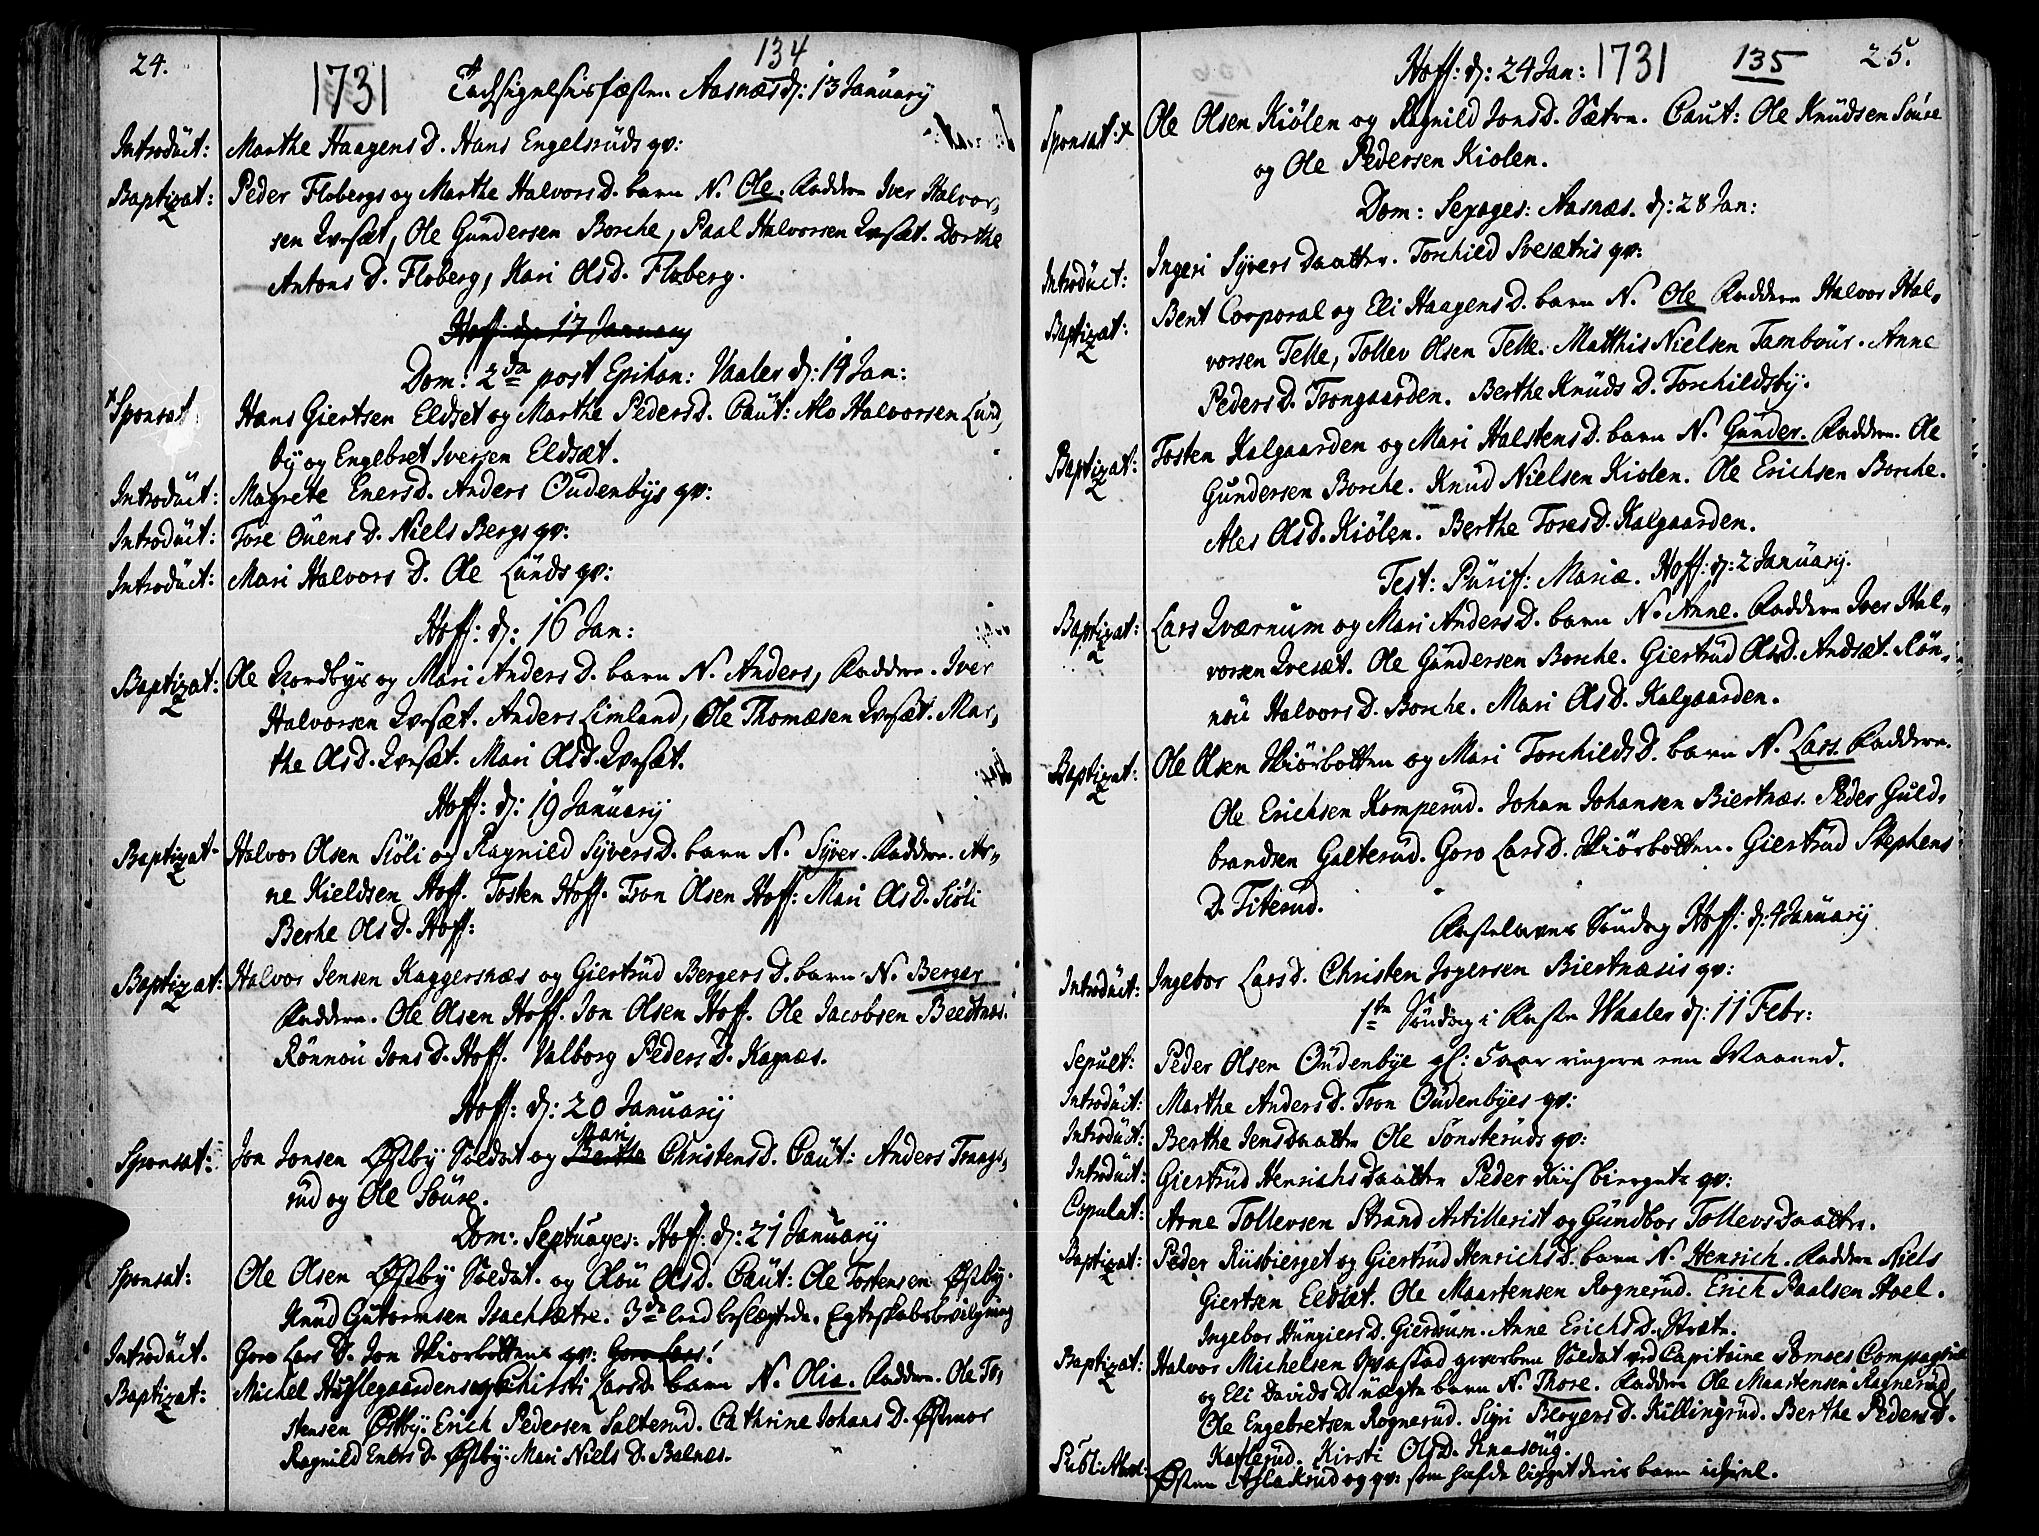 24.
134
1731
Tachsigelsis fæsten Aasnæs d: 13 January
Introduct: Marthe Haagens D. Hans Engelsruds qv:
Baptizat: Peder Flobergs og Marthe Halvors D. barn N. Ole. Faddere Iver Halvor-
sen Qvesæt, Ole Gundersen Borche, Paal Halvorsen Qvesæt. Dorthe
Antons D. Floberg, Kari Ols D. Floberg.
Hoff: d: 17 January
Dom: 2da post Epihan: Vaaler d: 14 Jan:
Sponsat: Hans Giertsen Eldset og Marthe Peders D. Caut: Alv Halvorsen Lund-
by og Engebret Iversen Eldsæt.
Introduct: Magrete Eners D. Anders Oudenbys qv:
Introduct: Tore Ouens D. Niels Bergs qv:
Introduct: Mari Halvors D. Ole Lunds qv:
Hoff: d: 16 Jan:
Baptizat: Ole Nordbys og Mari Anders D. barn N. Anders, Faddere. Iver
Halvorsen Qvesæt. Anders Limland, Ole Thomæsen Qvesæt. Mar-
the Ols D. Qvesæt. Mari Ols D. Qvesæt.
Hoff: d: 19 January
Baptizat: Halvor Olsen Siøli og Ragnild Syvers D. barn N. Syver. Faddere. Ar-
ne Kieldsen Hoff. Tosten Hoff. Tron Olsen Hoff: Mari Ols D. Siøli
Berhe Ols D. Hoff:
Baptizat: Halvor Jensen Kaggersnæs og Giertrud Bergers D. barn N. Berger
Faddere. Ole Olsen Hoff. Jon Olsen Hoff. Ole Jacobsen Beedtnæs.
Rønnou Jons D. Hoff. Valborg Peders D. Kagnæs.
Hoff: d: 20 January
Mari
Sponsat: Jon Jonsen Østby Soldat og Berthe Christens D. Caut: Anders Traags-
rud og Ole Soure.
Dom: Septuages: Hoff: d: 21 January
Sponsat: Ole Olsen Østby Soldat. og Olou Ols D. Caut: Ole Tostensen Østby.
Knud Gutormsen Isachsætre. 3de leed beslægtede. Egteskabsbevilgning
Introduct. Goro Lars D. Jon Skiorbottens qv: Goro Lars:
Baptizat: Michel Huslegaardens og Chirsti Lars D. barn N. Olia. Faddere. Ole To-
stensen Østby. Erich Pedersen Salterud. Cathrine Johans D. Østmoe
Ragnild Eners D. Østby. Mari Niels D. Balnes.
Hoff: d: 24 Jan: 1731
135
25.
Sponsat: Ole Olsen Kiølen og Ragnild Jons D. Sætre. Caut: Ole Knudsen Soure
og Ole Pedersen Kiolen.
Dom: Sexages: Aasnæs. d: 28 Jan:
Introduct: Ingeri Syvers Daatter. Torchild Svesætris qv:
Baptizat: Bent Corporal og Eli Haagens D. barn N. Ole Faddere Halvor Hal-
vorsen Telle, Tollev Olsen Telle. Matthis Nielsen Tambour. Anne
Peders D. Trongaarden. Berthe Knuds D. Torchildsby.
Baptizat: Tosten Kalgaarden og Mari Halstens D. barn N. Gunder. Faddere. Ole
Gundersen Borche. Knud Nielsen Kiolen. Ole Erichsen Borche.
Ales Ols D. Kiølen. Berthe Tores D. Kalgaarden.
Fest: Purif: Mariæ. Hoff: d: 2 January.
Baptizat: Lars Qværnum og Mari Anders D. barn N. Anne. Faddere Iver Hal-
vorsen Qvesæt. Ole Gundersen Borche. Giertrud Ols D. Andsæt. Røn-
nou Halvors D. Borche. Mari Ols D. Kalgaarden.
Baptizat: Ole Olsen Skiørbotten og Mari Torchilds D. barn N. Lars. Faddere.
Ole Erichsen Komperud. Johan Johansen Biertnæs. Peder Guld-
brandsen Galterud. Goro Lars D. Skiørbotten. Giertrud Stephens
D. Titerud.
Fastelavens Søndag Hoff: d: 4 January
Introduct: Ingebor Lars D. Christen Jogersen Biertnæsis qv:
1te Søndag i Faste Waaler d: 11 Febr:
Sepult: Peder Olsen Oudenbye gl: 5 aar ringere een Maaned.
Introduct: Marthe Anders D. Tron Oudenbyes qv:
Introduct: Berthe Jens Daatter Ole Sønsteruds qv:
Introduct: Giertrud Henrichs Daatter Peder Riisbiergets qv:
Copulat: Arne Tollevsen Strand Artillerist og Gundbor Tollevs Daatter.
Baptizat: Peder Riisbierget og Giertrud Henrichs D. barn N. Henrich. Faddere Niels
Giertsen Eldsæt. Ole Maartensen Rognerud. Erich Paalsen Hoel.
Ingebor Hungiers D. Gierdrum. Anne Erichs D. Stræte.
Baptizat: Halvor Michelsen Opastad gevorben Soldat ved Capitaine Pomses Compagnie
og Eli Davids D. uægte barn N. Thore. Faddere Ole Maartensen Rognerud
Ole Engebretsen Rognerud. Siri Bergers D. Killingrud. Berthe Peders D.
Katterud. Kirsti Ols D. Knasoug.
Publ: Absol: Østen Aslakrud og qv: som hafde ligget deris barn ihiel.